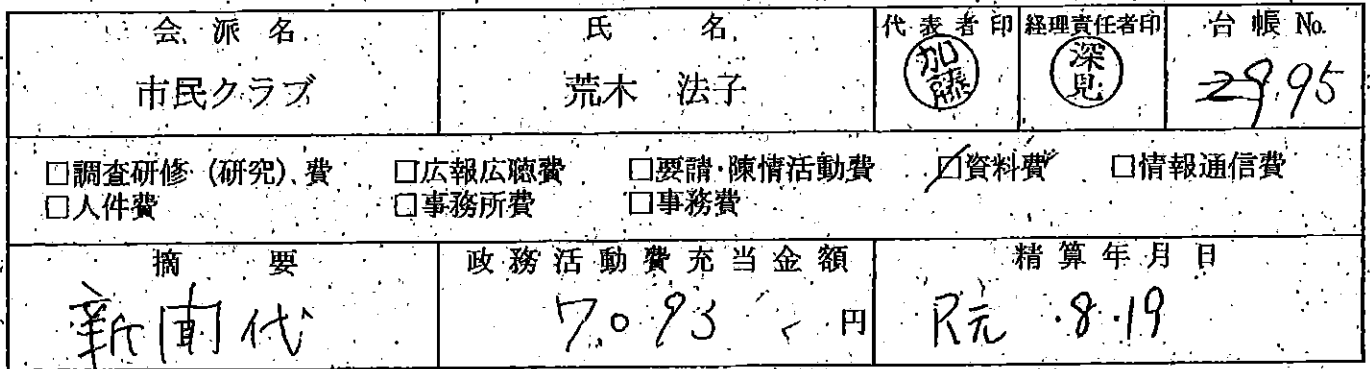 会派名 氏名 代表者印 経理責任者印 台帳 No.
市民クラブ 荒木 法子 加藤 深見 29.95
□調査研修(研究)費 □広報広聴費 □要請・陳情活動費 ☑資料費 □情報通信費
□人件費 □事務所費 □事務費
摘要 政務活動費充当金額 精算年月日
新聞代 7.093 円 R元.8.19